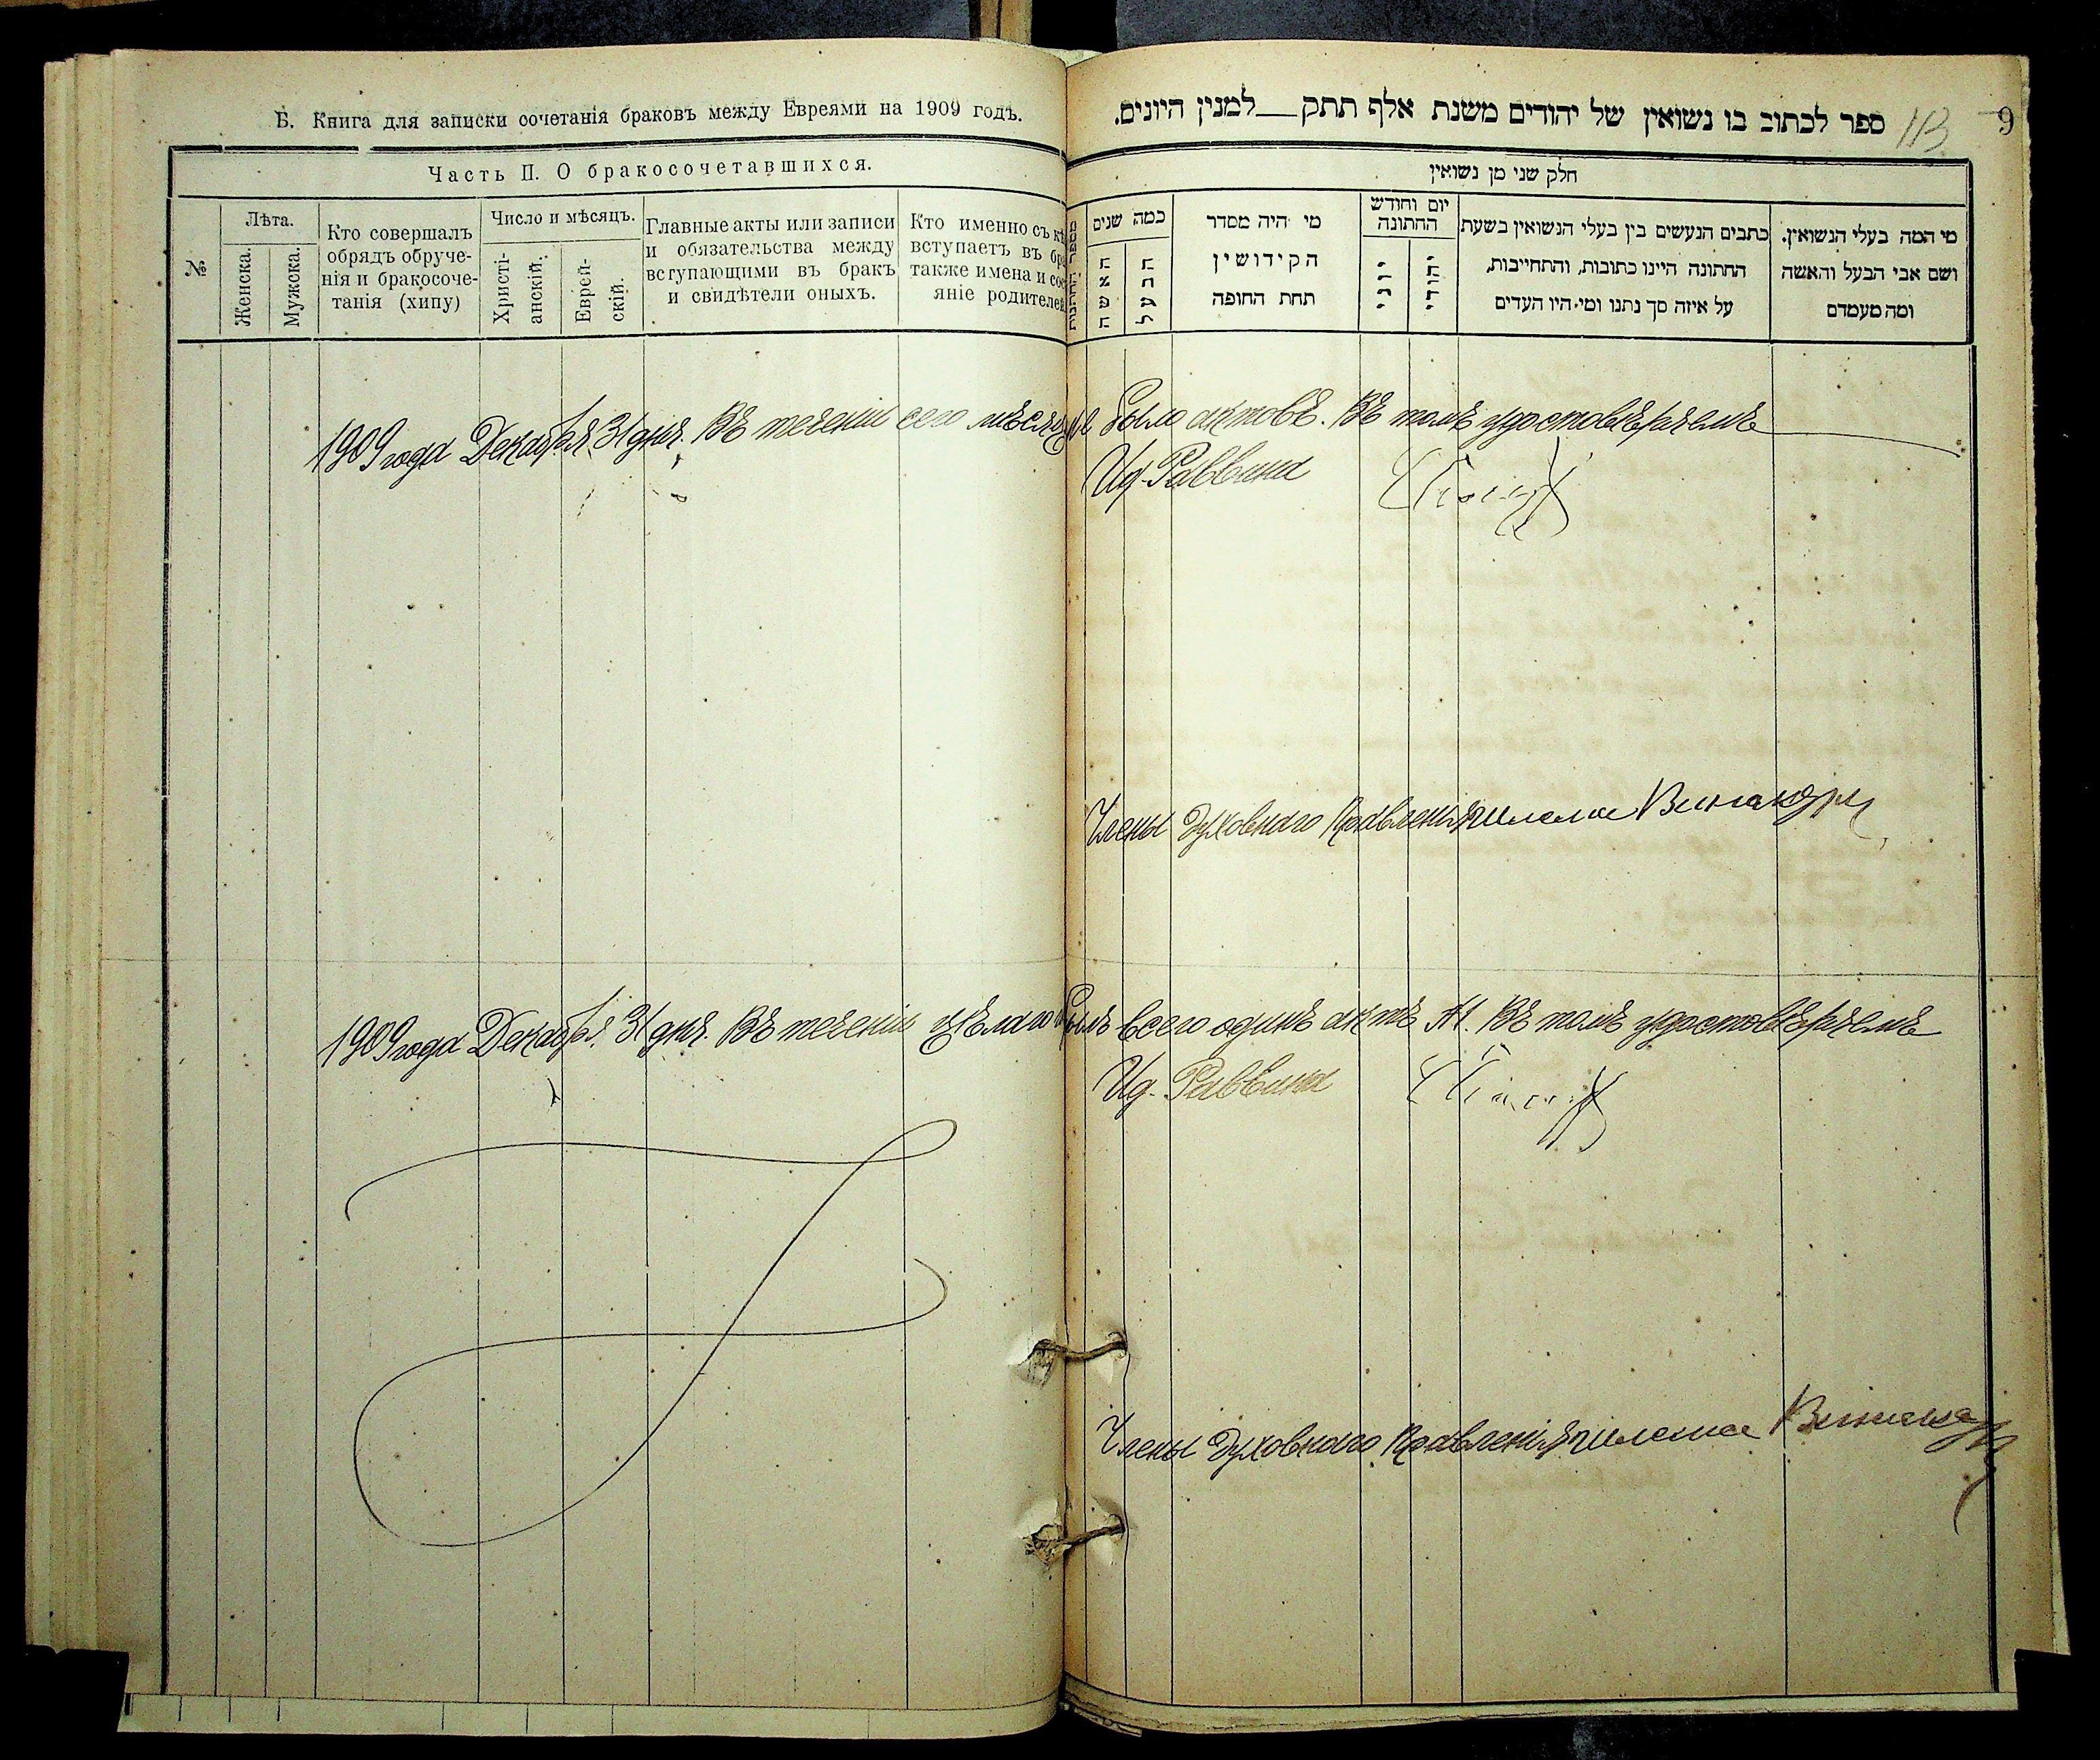 Б. Книга для записки сочетанія браковъ между Евреями на 1909 годъ.
Часть II. О бракосочетавшихся.
№
Лѣта.
Женска.
Мужска.
Кто совершалъ
обрядъ обруче-
нія и бракосоче-
танія (хипу)
Число и мѣсяцъ.
Христі-
анскій.
Еврей-
скій.
Главные акты или записи
и обязательства между
вступающими въ бракъ
и свидѣтели оныхъ.
Кто именно съ
вступаетъ въ
также имена и
яніе родителей
1909 года Декабря 31 дня. Въ теченіи сего
1909 года Декабря 31 дня. Въ теченіи цѣлаго
ספר לכתוב בו נשואין של יהודים משנת אלף תתק__למנין היונים.
9
חלק שני מן נשואין
מספר החתונות
כמה שנים
האשה
הבעל
מי היה מסדר
הקידושין
תחת החופה
יום וחודש
החתונה
יוני
יהודי
כתבים הנעשים בין בעלי הנשואין בשעת
החתונה היינו כתובות, והתחייבות,
על איזה סך נתנו ומי היו העדים
מי המה בעלי הנשואין.
ושם אבי הבעל והאשה
ומה מעמדם
было актовъ. Въ томъ удостовѣряемъ
Ид. Раввина
Члены Духовнаго Правленія
былъ всего одинъ актъ №1. Въ томъ удостовѣряемъ
Ид. Раввина
Члены Духовнаго Правленія